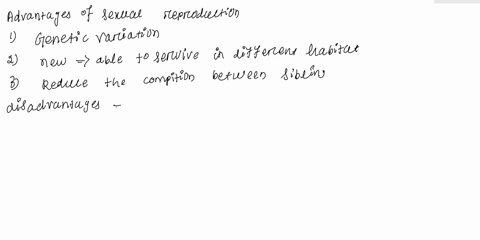 Advantages of sexual reproduction
1) Genetic variation
2) new => able to serwive in different habitat
3) Reduce the compition between siblin
disadvantages -